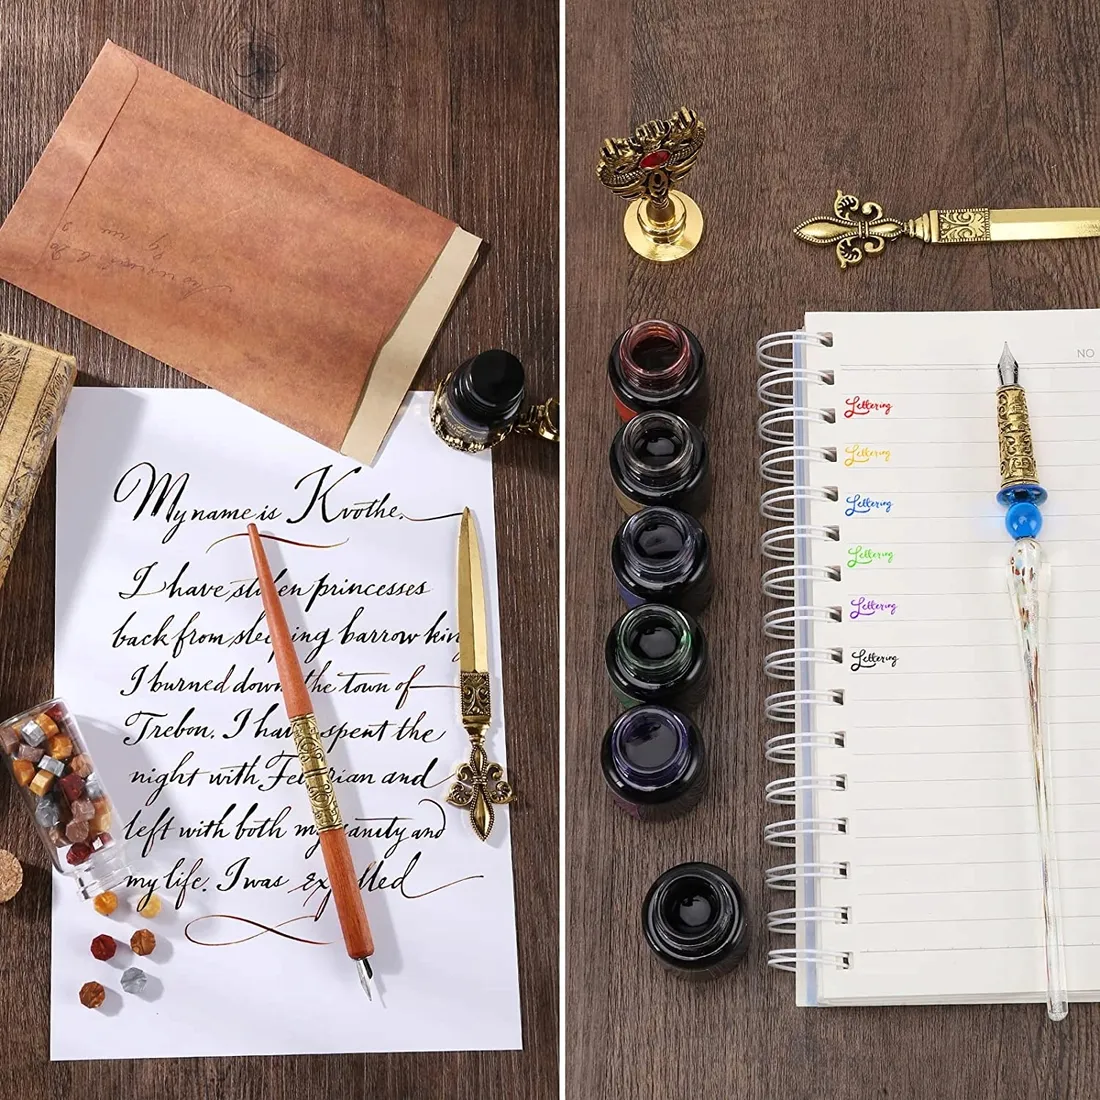 My name is Kvothe.
I have stolen princesses
back from sleeping barrow kin
I burned down the town of
Trebon. I have spent the
night with Felurian and
left with both my sanity and
my life. I was expelled
NO
Lettering
Lettering
Lettering
Lettering
Lettering
Lettering